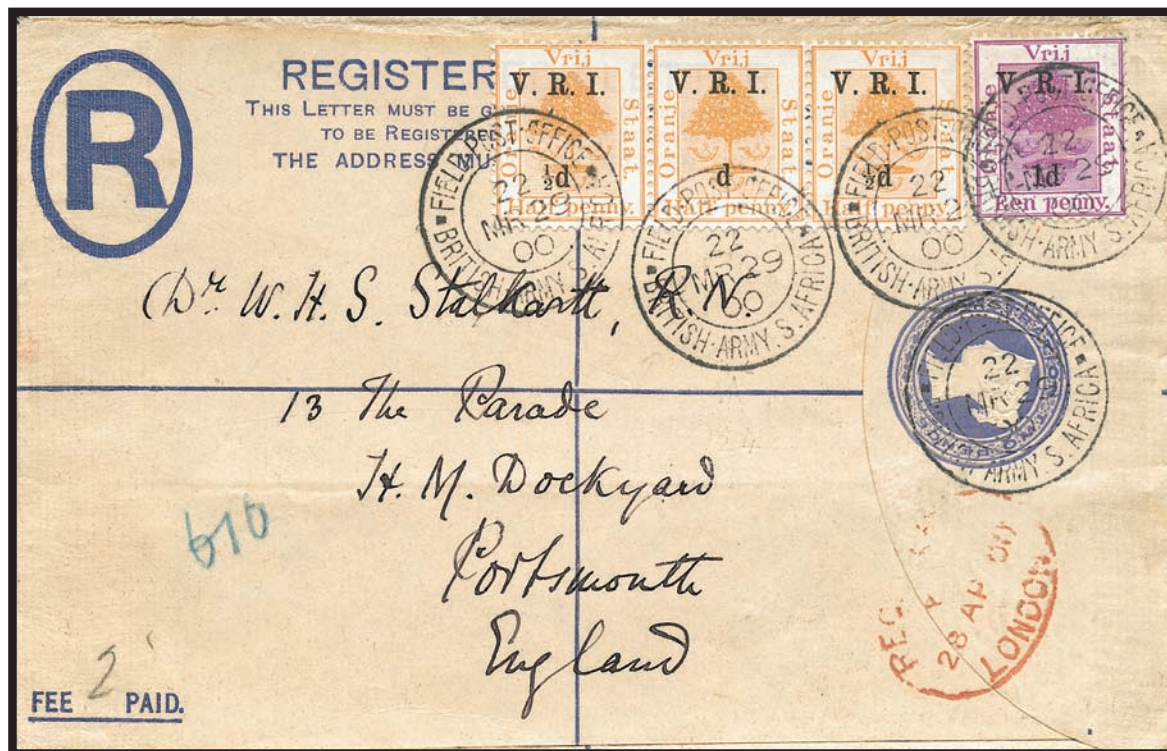 R
REGISTER
THIS LETTER MUST BE G
TO BE REGISTERE
THE ADDRESS MU
Vrij
V. R. I.
Oranje
Staat.
½d
Half penny.
Vrij
V. R. I.
Oranje
Staat.
d
Half penny.
Vrij
V. R. I.
Oranje
Staat.
½d
Half penny.
Vrij
V. R. I.
Oranje
Staat.
1d
Een penny.
FIELD-POST-OFFICE
22
MR 29
00
BRITISH-ARMY. S. AFRICA
FIELD-POST-OFFICE
22
MR 29
00
BRITISH-ARMY. S. AFRICA
FIELD-POST
22
MR 2
00
BRITISH-ARMY S. A
POST-OFFICE
22
MR 29
ISH-ARMY S. AFRICA
OFFICE
22
MR 29
ARMY S. AFRICA
Dr. W. H. S. Stalkartt, R.N.
13 The Parade
H. M. Dockyard
Portsmouth
England
610
REG
28 AP 00
LONDON
2
FEE PAID.